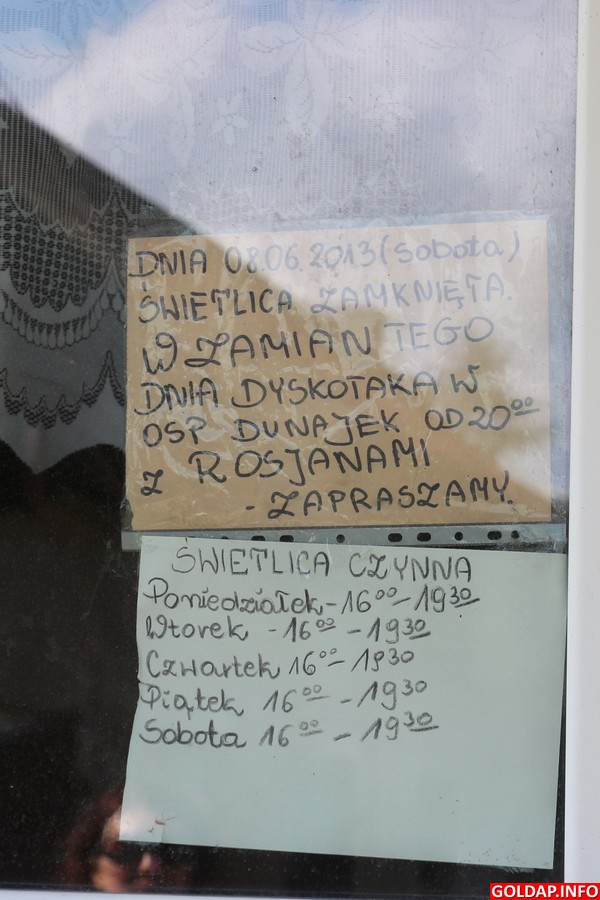 DNIA 08.06.2013 (sobota)
ŚWIETLICA ZAMKNIĘTA.
W ZAMIAN TEGO
DNIA DYSKOTAKA W
OSP DUNAJEK OD 20⁰⁰
Z ROSJANAMI
- ZAPRASZAMY.
ŚWIETLICA CZYNNA
Poniedziałek - 16⁰⁰ - 19³⁰
Wtorek - 16⁰⁰ - 19³⁰
Czwartek 16⁰⁰ - 19³⁰
Piątek 16⁰⁰ - 19³⁰
Sobota 16⁰⁰ - 19³⁰
GOLDAP.INFO